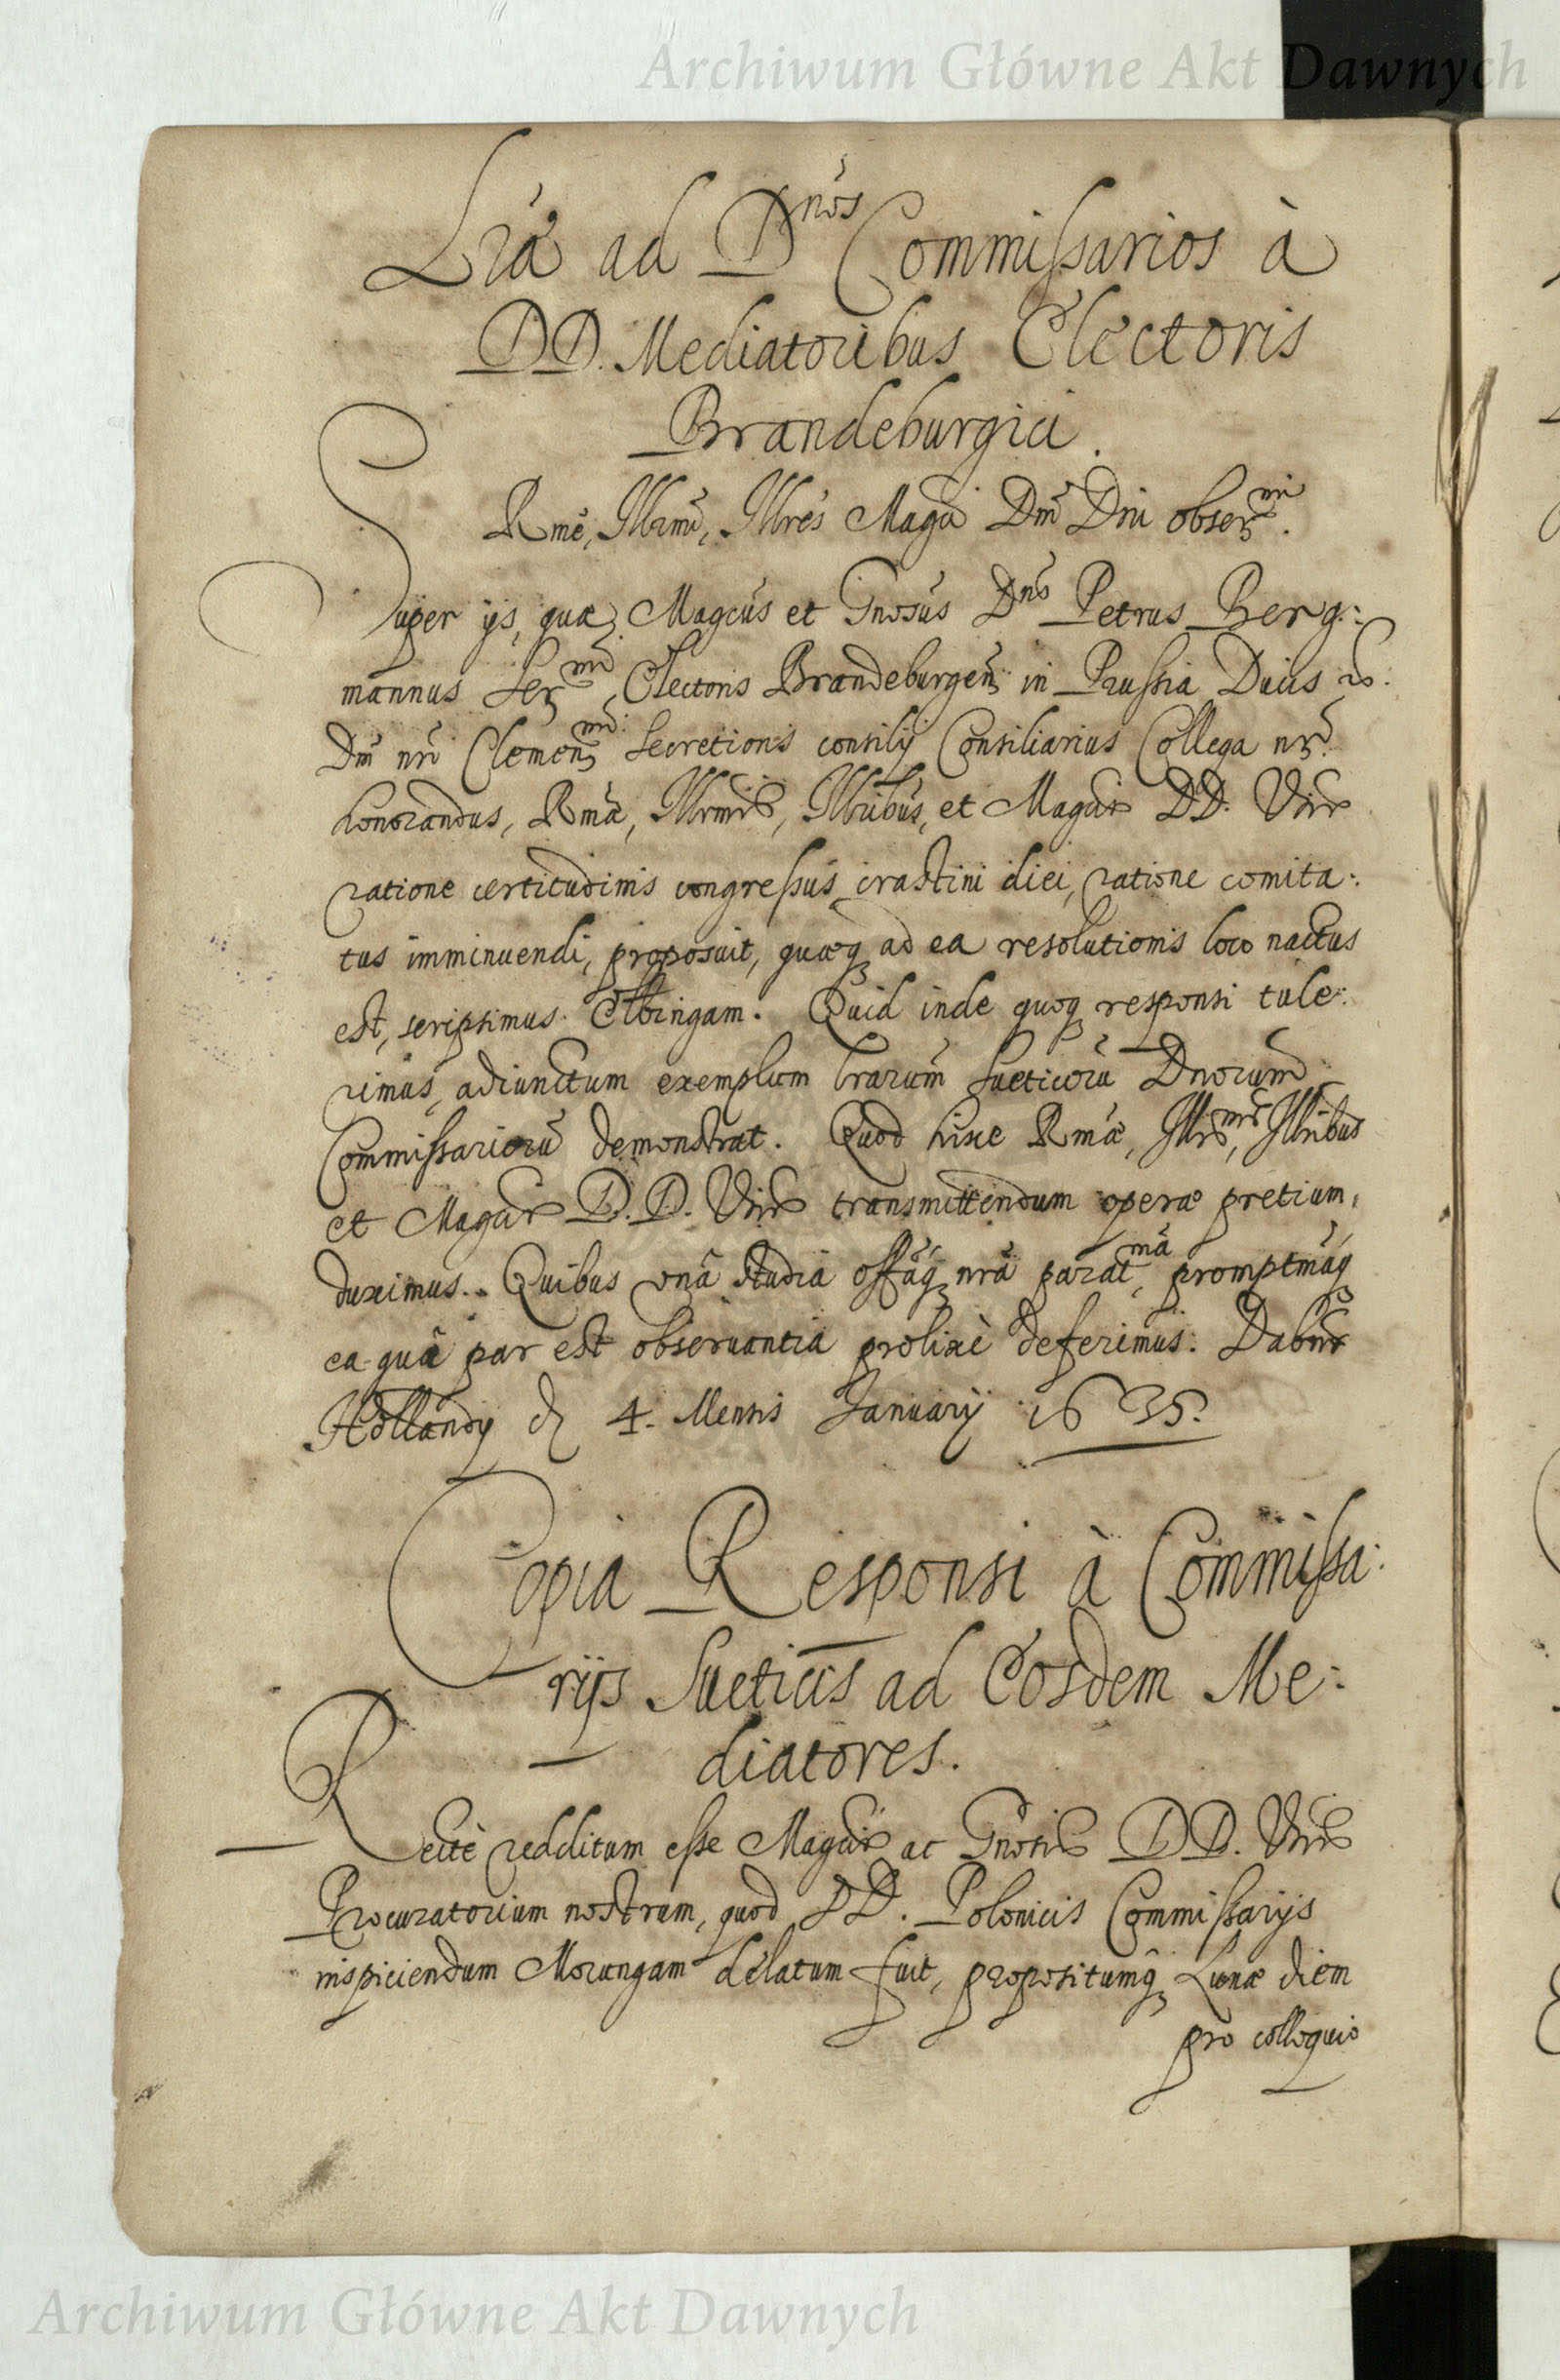 Archiwum Główne Akt Dawnych
Lrã ad D^nos Commissarios à
DD. Mediatoribus Electoris
Brandeburgici.
Rme, Illrmi, Illres Magci Dm̃ Dni obser^mi.
Super ijs, quæ Magcus et Gnosus D^ns Petrus Berg:
mannus Ser^mi Electoris Brandeburgen̄ in Prussia Ducis
Dni nr̃i Clemen^mi Secretioris consilij Consiliarius Collega nr̃
honorandus, Rmæ, Illrmis, Illribus, et Magcis DD. Vris
ratione certitudinis congressus crastini diei, ratione comita:
tus imminuendi, proposuit, quæq ad ea resolutionis loco nactus
est, scripsimus Elbingam. Quid inde quoq responsi tule:
rimus, adiunctum exemplum lrarum Sueticorũ Dnorum
Commissariorũ demonstrat. Quod hisce Rmæ, Illr^mis, Illribus
et Magcis D.D. Vris transmittendum operæ pretium,
duximus. Quibus unâ studia offãq nrã parat^ma, promptmãq
ea quâ par est observantiâ prolixè deferimus. Dabnr
Hollandij d 4. Mensis Januarij 1635.
Copia Responsi à Commissa:
rijs Sueticis ad Eosdem Me:
diatores.
Recte redditum esse Magcis ac Gnosis DD. Vris
Procuratorium nostrum, quod DD. Polonicis Commissarijs
inspiciendum Morungam delatum fuit, propositumq Lunæ diem
pro colloquio
Archiwum Główne Akt Dawnych